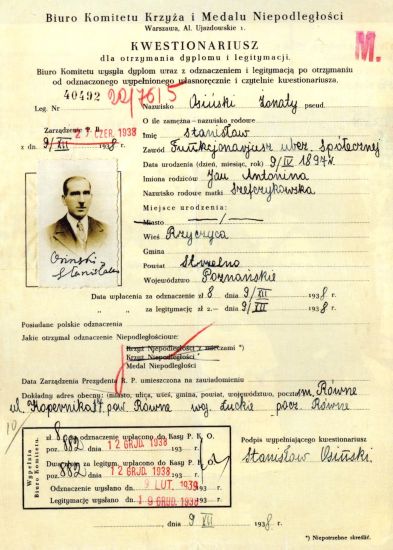 Biuro Komitetu Krzyża i Medalu Niepodległości
Warszawa, Al. Ujazdowskie 1.
KWESTIONARIUSZ
dla otrzymania dyplomu i legitymacji.
M.
Biuro Komitetu wysyła dyplom wraz z odznaczeniem i legitymacją po otrzymaniu
od odznaczonego wypełnionego własnoręcznie i czytelnie kwestionariusza.
40492
Leg. Nr
Nazwisko Osiński Żonaty pseud.
O ile zamężna — nazwisko rodowe
Imię Stanisław
Zarządzenie P. R. 27 CZER. 1938
z dn. 9/XII 1938 r.
Zawód Funkcjonarjusz uber. Społecznej
Data urodzenia (dzień, miesiąc, rok) 9/IV 1897 r.
Imiona rodziców Jan Antonina
Nazwisko rodowe matki Szefczykowska
Miejsce urodzenia:
Miasto
Wieś
Gmina
Powiat Strzelno
Województwo Poznańskie
Osiński
Stanisław
Data wpłacenia za odznaczenie zł 8 dnia 9/XII 1938 r.
" " za legitymację zł 2.— dnia 9/XII 1938 r.
Posiadane polskie odznaczenia
Jakie otrzymał odznaczenie Niepodległościowe:
Krzyż Niepodległości z mieczami *)
Krzyż Niepodległości
Medal Niepodległości
Data Zarządzenia Prezydenta R. P. umieszczona na zawiadomieniu
Dokładny adres obecny: (miasto, ulica, wieś, gmina, powiat, województwo, poczta) m. Równe
ul. Kopernika 17 pow. Równe woj. Łuckie pocz. Równe
Wypełnia
Biuro Komitetu.
zł 8 za odznaczenie wpłacono do Kasy P. K. O.
poz. 882 12 GRUD. 1938 193 r.
Dwa zł za legitym. wpłacono do Kasy P. K. O.
poz. 882 dnia 12 GRUD. 1938 193 r.
Odznaczenie wysłano dnia 9 LUT. 1939 193 r.
Legitymację wysłano dnia 19 GRUD. 1938 r.
Podpis wypełniającego kwestionariusz
Stanisław Osiński
, dnia 9 XII 1938 r.
*) Niepotrzebne skreślić.